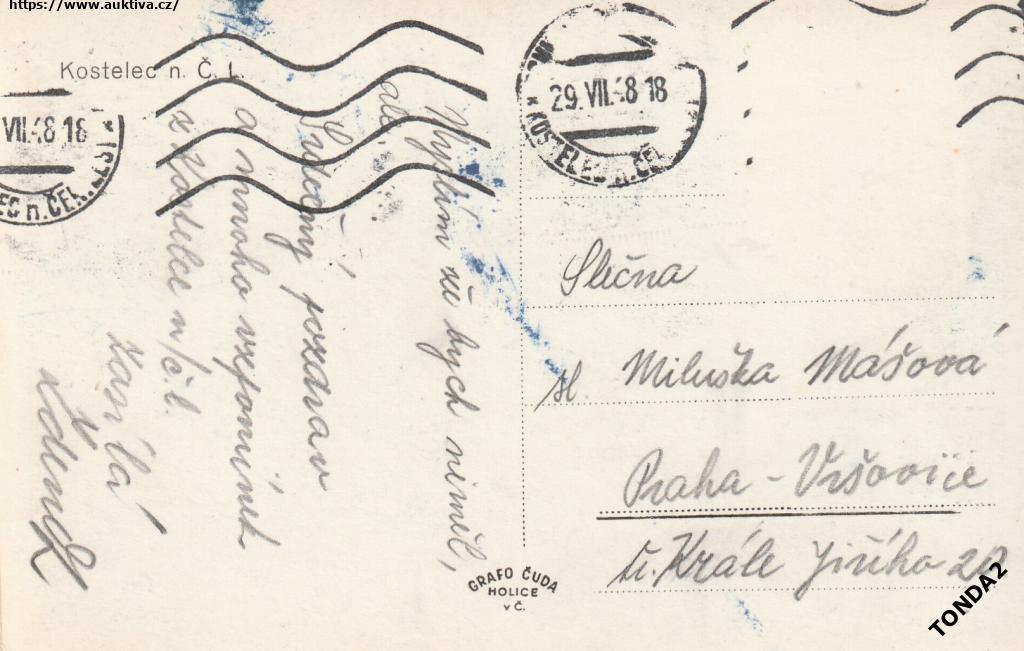 https://www.auktiva.cz/
Kostelec n. Č. L.
VII.48 18
EC n. ČER. LESY *
29. VII. 48 18
* KOSTELEC n. ČER.
Myslím že bych neměl,
ale
Srdečný pozdrav
a mnoho vzpomínek
z Kostelce n/č.l.
Zdeněk
Slečna
sl. Miluška Mášová
Praha - Vršovice
u. Krále Jiřího
GRAFO ČUDA
HOLICE
v Č.
TONDA2